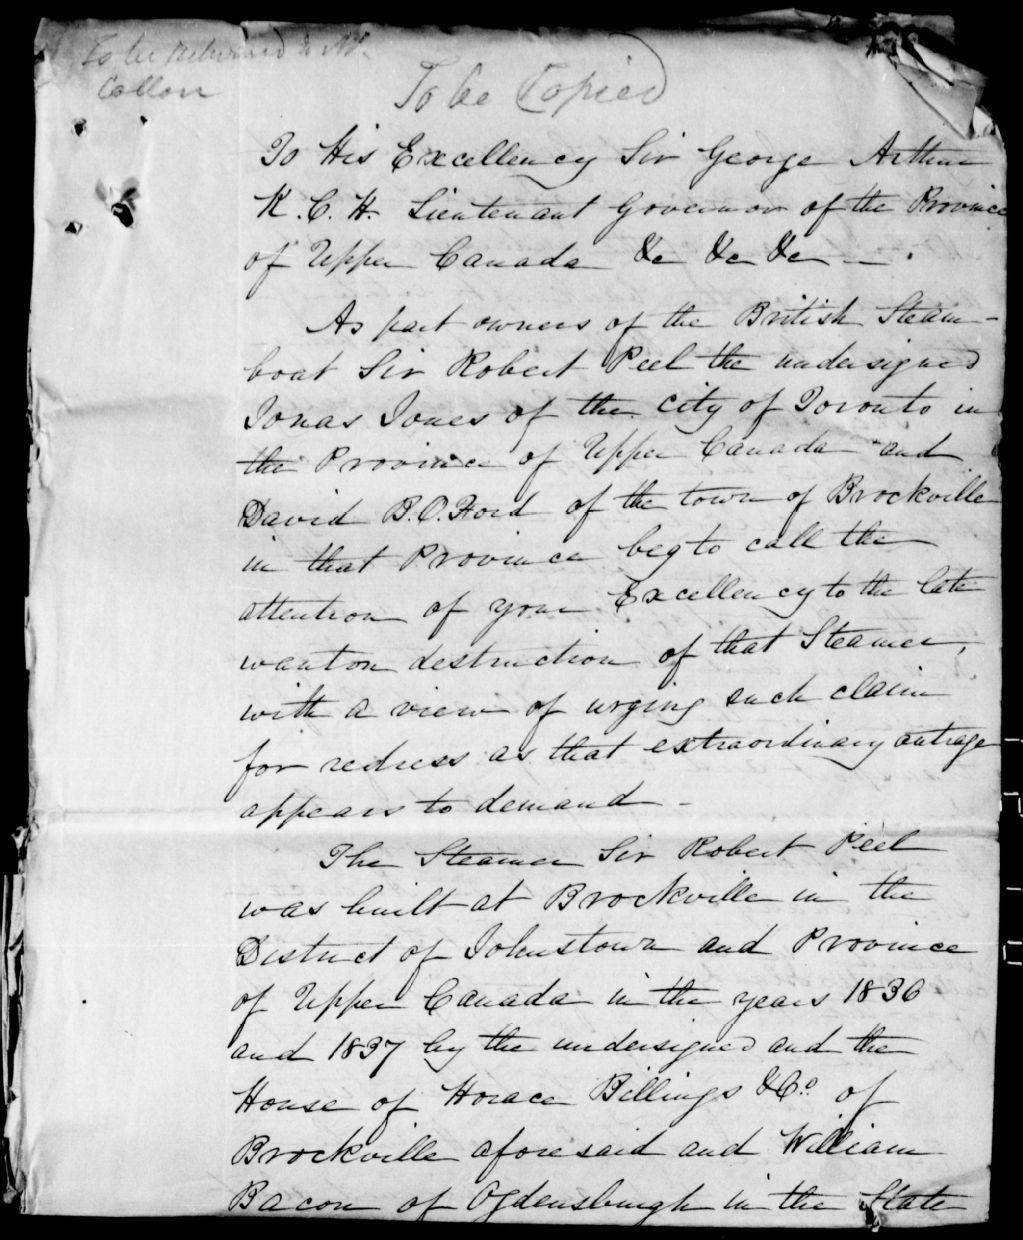 To be returned to Mr.
To be Copied
To His Excellency Sir George Arthur
K. C. H. Lieutenant Governor of the Province
of Upper Canada &c &c &c — .
As part owners of the British Steam-
boat Sir Robert Peel the undersigned
Jonas Jones of the city of Toronto in
the Province of Upper Canada and
David B. O. Ford of the town of Brockville
in that Province beg to call the
attention of your Excellency to the late
wanton destruction of that Steamer,
with a view of urging such claim
for redress as that extraordinary outrage
appears to demand –
The Steamer Sir Robert Peel
was built at Brockville in the
District of Johnstown and Province
of Upper Canada in the years 1836
and 1837 by the undersigned and the
House of Horace Billings & Co. of
Brockville aforesaid and William
Bacon of Ogdensburgh in the State